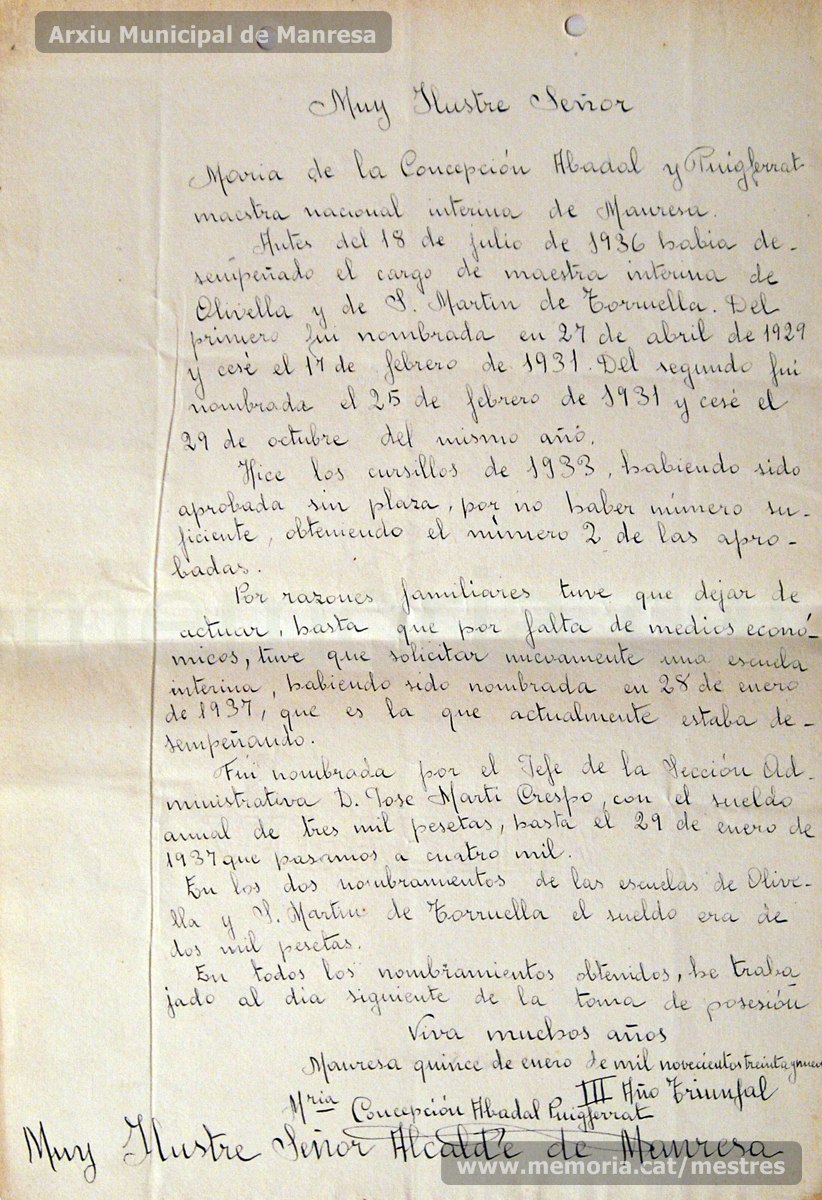 Arxiu Municipal de Manresa
Muy Ilustre Señor
Maria de la Concepción Abadal y Puigferrat
maestra nacional interina de Manresa.
Antes del 18 de julio de 1936 habia de-
sempeñado el cargo de maestra interina de
Olivella y de S. Martin de Torruella. Del
primero fui nombrada en 27 de abril de 1929
y cesé el 17 de febrero de 1931. Del segundo fui
nombrada el 25 de febrero de 1931 y cesé el
29 de octubre del mismo añó.
Hice los cursillos de 1933, habiendo sido
aprobada sin plaza, por no haber número su-
ficiente, obteniendo el número 2 de las apro-
badas.
Por razones familiares tuve que dejar de
actuar, hasta que por falta de medios econó-
micos, tuve que solicitar nuevamente una escuela
interina, habiendo sido nombrada en 28 de enero
de 1937, que es la que actualmente estaba de-
sempeñando.
Fui nombrada por el Jefe de la Sección Ad-
ministrativa D. Jose Marti Crespo, con el sueldo
anual de tres mil pesetas, hasta el 29 de enero de
1937 que pasamos a cuatro mil.
En los dos nombramientos de las escuelas de Olive-
lla y S. Martin de Torruella el sueldo era de
dos mil pesetas.
En todos los nombramientos obtenidos, he traba
jado al dia siguiente de la toma de posesión
Viva muchos años
Manresa quince de enero de mil novecientos treinta y nueve
III Año Triunfal
Mria Concepción Abadal Puigferrat
Muy Ilustre Señor Alcalde de Manresa
www.memoria.cat/mestres